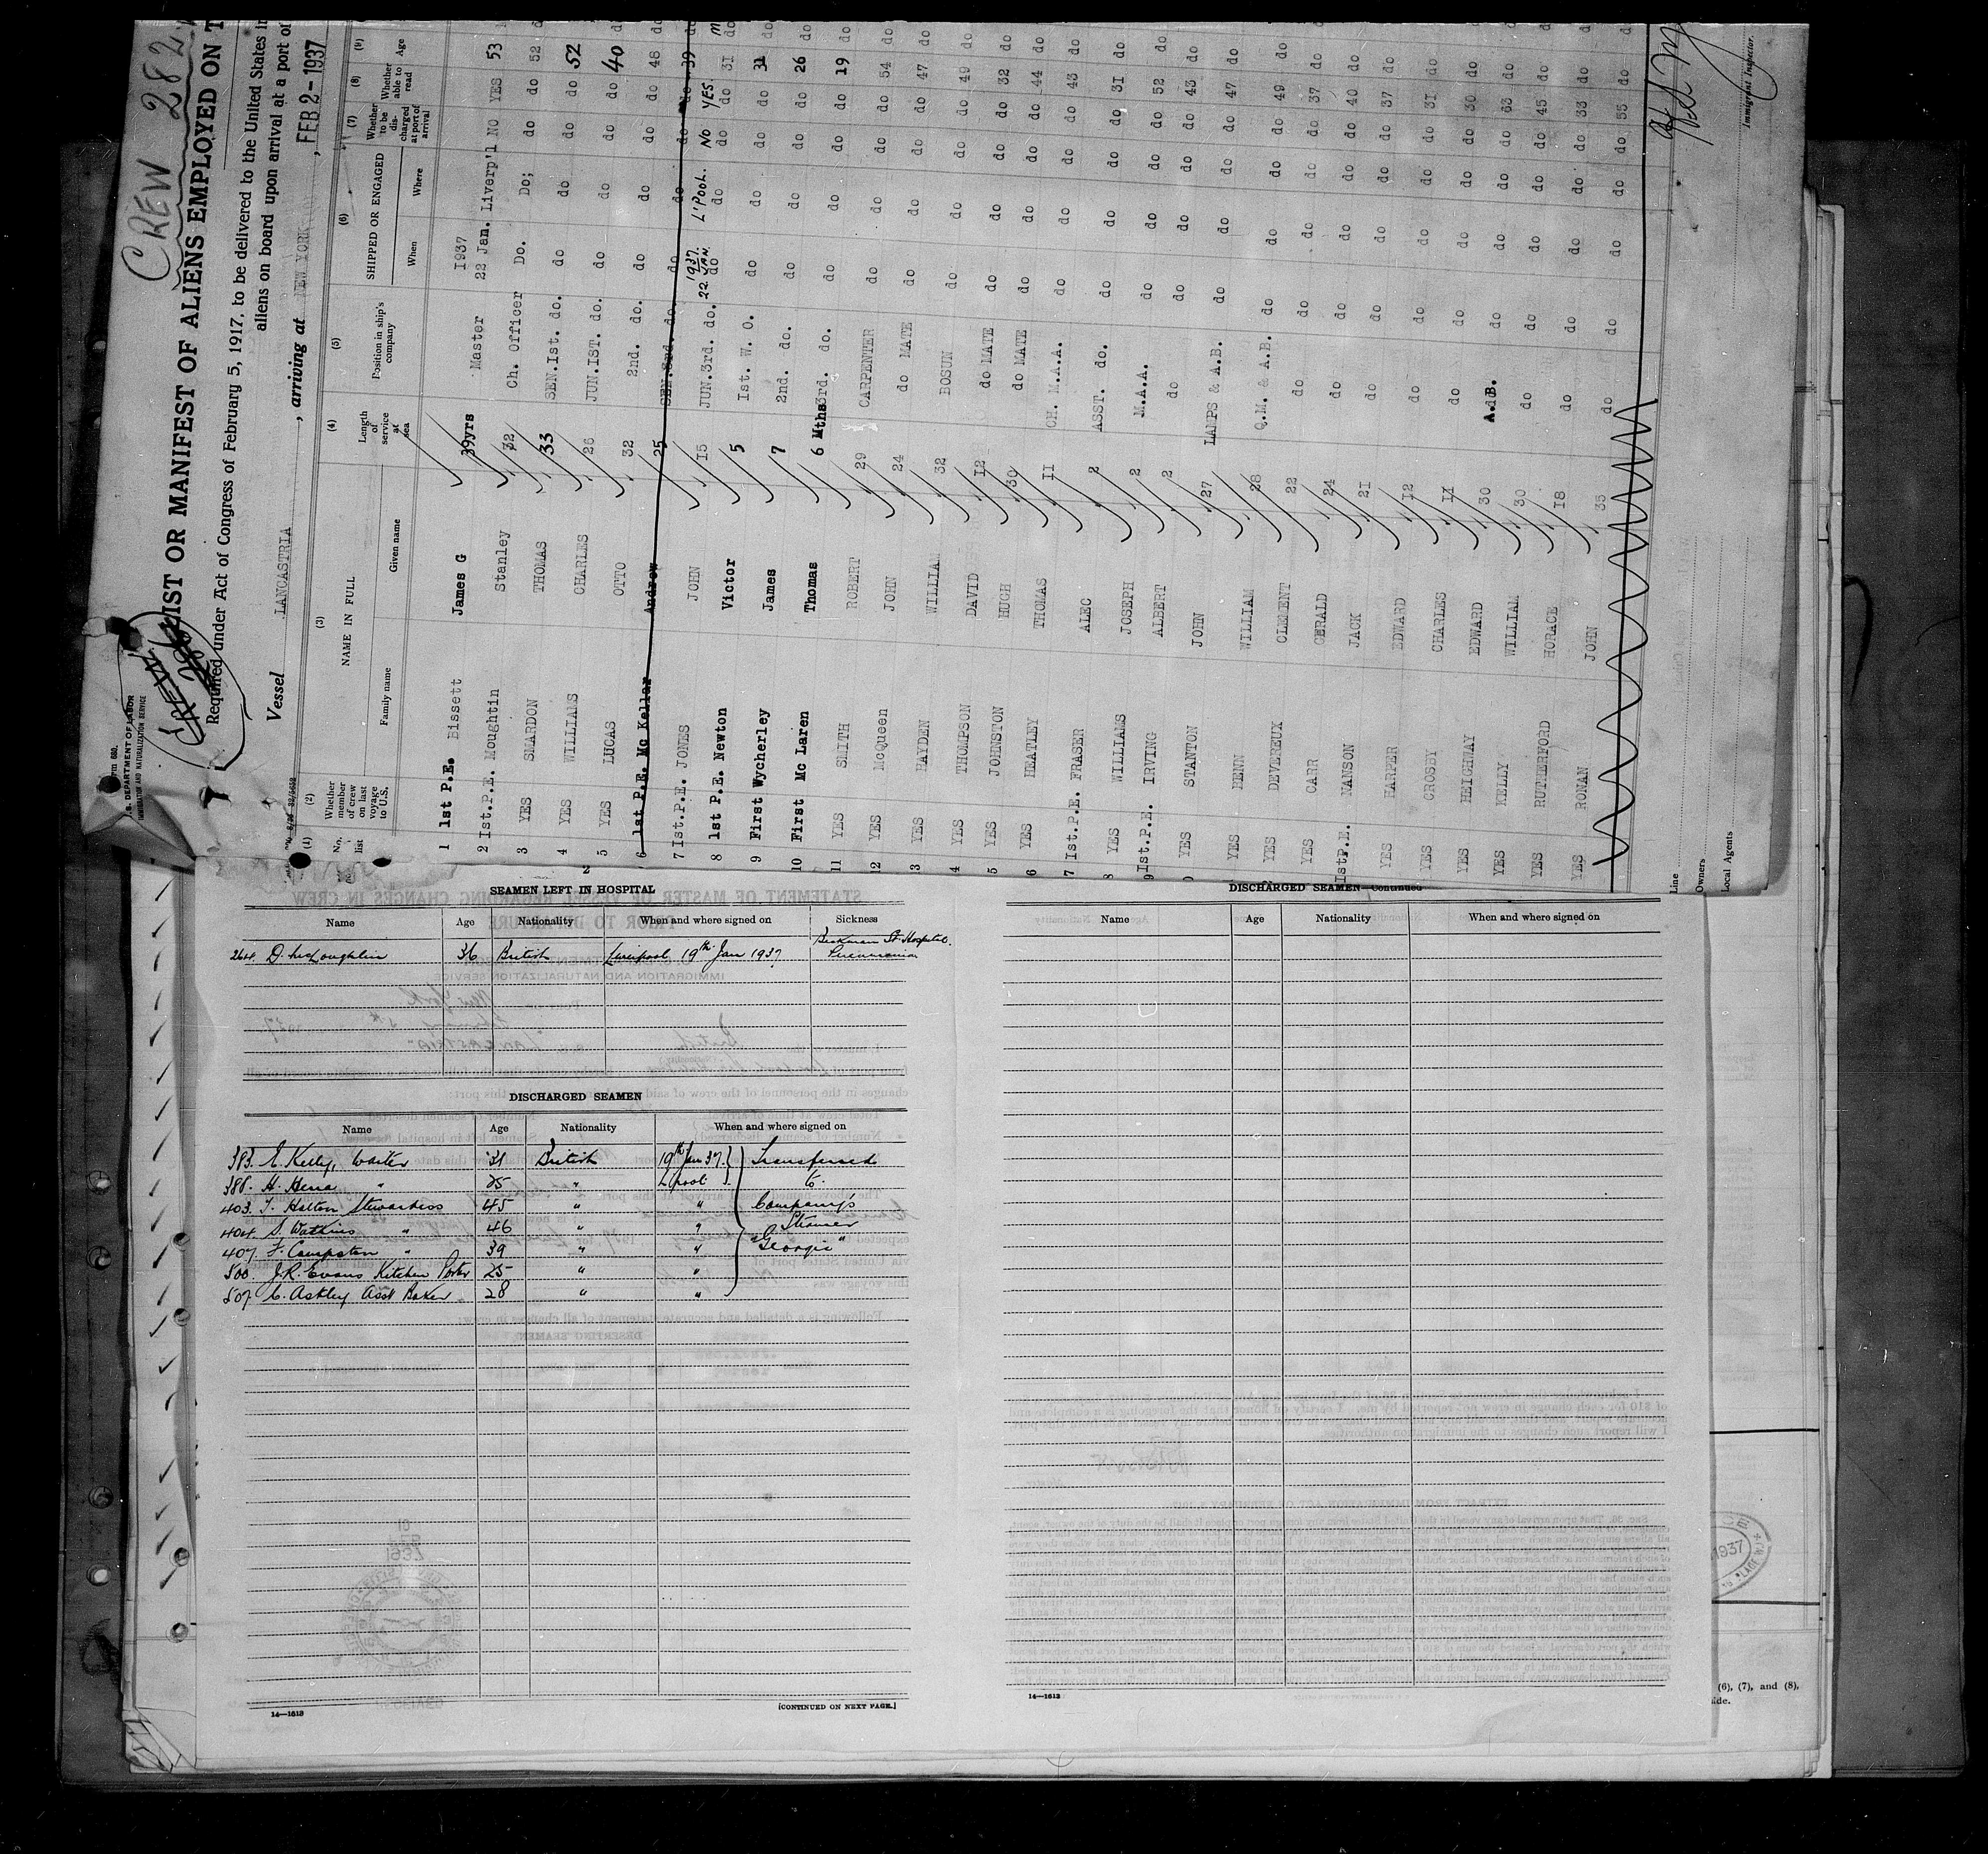 CREW 282
LIST OR MANIFEST OF ALIENS EMPLOYED ON T
Required under Act of Congress of February 5, 1917, to be delivered to the United States I
aliens on board upon arrival at a port of
Form 680.
U. S. DEPARTMENT OF LABOR
IMMIGRATION AND NATURALIZATION SERVICE
CREW
Vessel LANCASTRIA, arriving at NEW YORK, FEB 2 - 1937
(1) (2) (3) (4) (5) (6) (7) (8) (9)
No. list Whether member of crew on last voyage to U.S. NAME IN FULL Length of service at sea Position in ship's company SHIPPED OR ENGAGED Whether to be discharged at port of arrival Whether able to read Age
Family name Given name When Where
1937
1 1st P.E. Bissett James G 39yrs Master 22 Jan. Liverp'l NO YES 53
2 Ist.P.E. Moughtin Stanley 32 Ch. Officer Do. Do; do do 52
3 YES SMARDON THOMAS 33 SEN.Ist. do. do do do do 52
4 YES WILLIAMS CHARLES 26 JUN.IST. do. do do do do 40
5 YES LUCAS OTTO 32 2nd. do. do do do do 48
6 1st P.E. Mc Kellar Andrew 25 SEN.3rd. do. do do do do 39
1937 22 JAN. L'POOL. NO YES.
7 Ist.P.E. JONES JOHN 15 JUN.3rd. do. do do do do 31
8 1st P.E. Newton Victor 5 Ist. W. O. do do do do 31
9 First Wycherley James 7 2nd. do. do do do do 26
10 First Mc Laren Thomas 6 Mths 3rd. do. do do do do 19
11 YES SMITH ROBERT 29 CARPENTER do do do do 54
12 YES McQueen JOHN 24 do MATE do do do do 47
3 YES HAYDEN WILLIAM 32 BOSUN do do do do 49
4 YES THOMPSON DAVID 12 do MATE do do do do 32
5 YES JOHNSTON HUGH 30 do MATE do do do do 44
6 YES HEATLEY THOMAS 11 CH. M.A.A. do do do do 43
7 Ist.P.E. FRASER ALEC 2 ASST. do. do do do do 31
8 YES WILLIAMS JOSEPH 2 M.A.A. do do do do 52
9 Ist.P.E. IRVING ALBERT 2 do do do do do 43
0 YES STANTON JOHN 27 LAMPS & A.B. do do do do 47
YES HENN WILLIAM 28 Q.M. & A.B. do do do do 49
YES DEVEREUX CLEMENT 22 do do do do do 37
YES CARR GERALD 24 do do do do do 40
Ist.P.E. NANSON JACK 21 do do do do do 37
YES HARPER EDWARD 12 do do do do do 31
YES CROSBY CHARLES 11 do do do do do 30
YES HEIGHWAY EDWARD 30 A.B. do do do do 63
YES KELLY WILLIAM 30 do do do do do 45
YES RUTHERFORD HORACE 18 do do do do do 33
YES RONAN JOHN 35 do do do do do 55
Line
Owners
Local Agents
Immigrant Inspector.
SEAMEN LEFT IN HOSPITAL
Name Age Nationality When and where signed on Sickness
264. D. McLoughlin 36 British Liverpool 19th Jan 1937 Beekman St. Hospital. Pneumonia
DISCHARGED SEAMEN
Name Age Nationality When and where signed on
383. E. Kelly, Waiter 31 British 19th Jan 37. Transferred
388. H. " 25 " L'pool to
403. Halton Stewardess 45 " " Company's
404. S. Watkins " 46 " " Steamer
407. F. Campston " 39 " " "Georgic"
500 J.R. Evans Kitchen Porter 25 " "
507. C. Astley Asst Baker 28 " "
14—1613
[CONTINUED ON NEXT PAGE.]
DISCHARGED SEAMEN—Continued
Name Age Nationality When and where signed on
14—1613
1937
(6), (7), and (8),
ide.